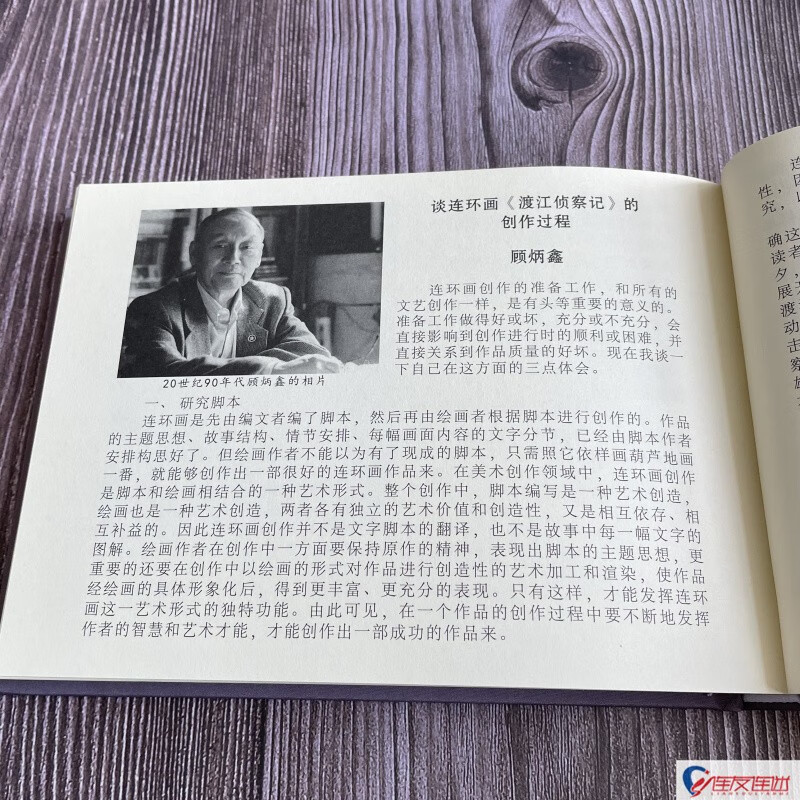 谈连环画《渡江侦察记》的
创作过程
顾炳鑫
连环画创作的准备工作，和所有的
文艺创作一样，是有头等重要的意义的。
准备工作做得好或坏，充分或不充分，会
直接影响到创作进行时的顺利或困难，并
直接关系到作品质量的好坏。现在我谈一
下自己在这方面的三点体会。
20世纪90年代顾炳鑫的相片
一、研究脚本
连环画是先由编文者编了脚本，然后再由绘画者根据脚本进行创作的。作品
的主题思想、故事结构、情节安排、每幅画面内容的文字分节，已经由脚本作者
安排构思好了。但绘画作者不能以为有了现成的脚本，只需照它依样画葫芦地画
一番，就能够创作出一部很好的连环画作品来。在美术创作领域中，连环画创作
是脚本和绘画相结合的一种艺术形式。整个创作中，脚本编写是一种艺术创造，
绘画也是一种艺术创造，两者各有独立的艺术价值和创造性，又是相互依存、相
互补益的。因此连环画创作并不是文字脚本的翻译，也不是故事中每一幅文字的
图解。绘画作者在创作中一方面要保持原作的精神，表现出脚本的主题思想，更
重要的还要在创作中以绘画的形式对作品进行创造性的艺术加工和渲染，使作品
经绘画的具体形象化后，得到更丰富、更充分的表现。只有这样，才能发挥连环
画这一艺术形式的独特功能。由此可见，在一个作品的创作过程中要不断地发挥
作者的智慧和艺术才能，才能创作出一部成功的作品来。
连
性，因
究，
确这
读者
夕，
展
渡
动
击
察
连友连说